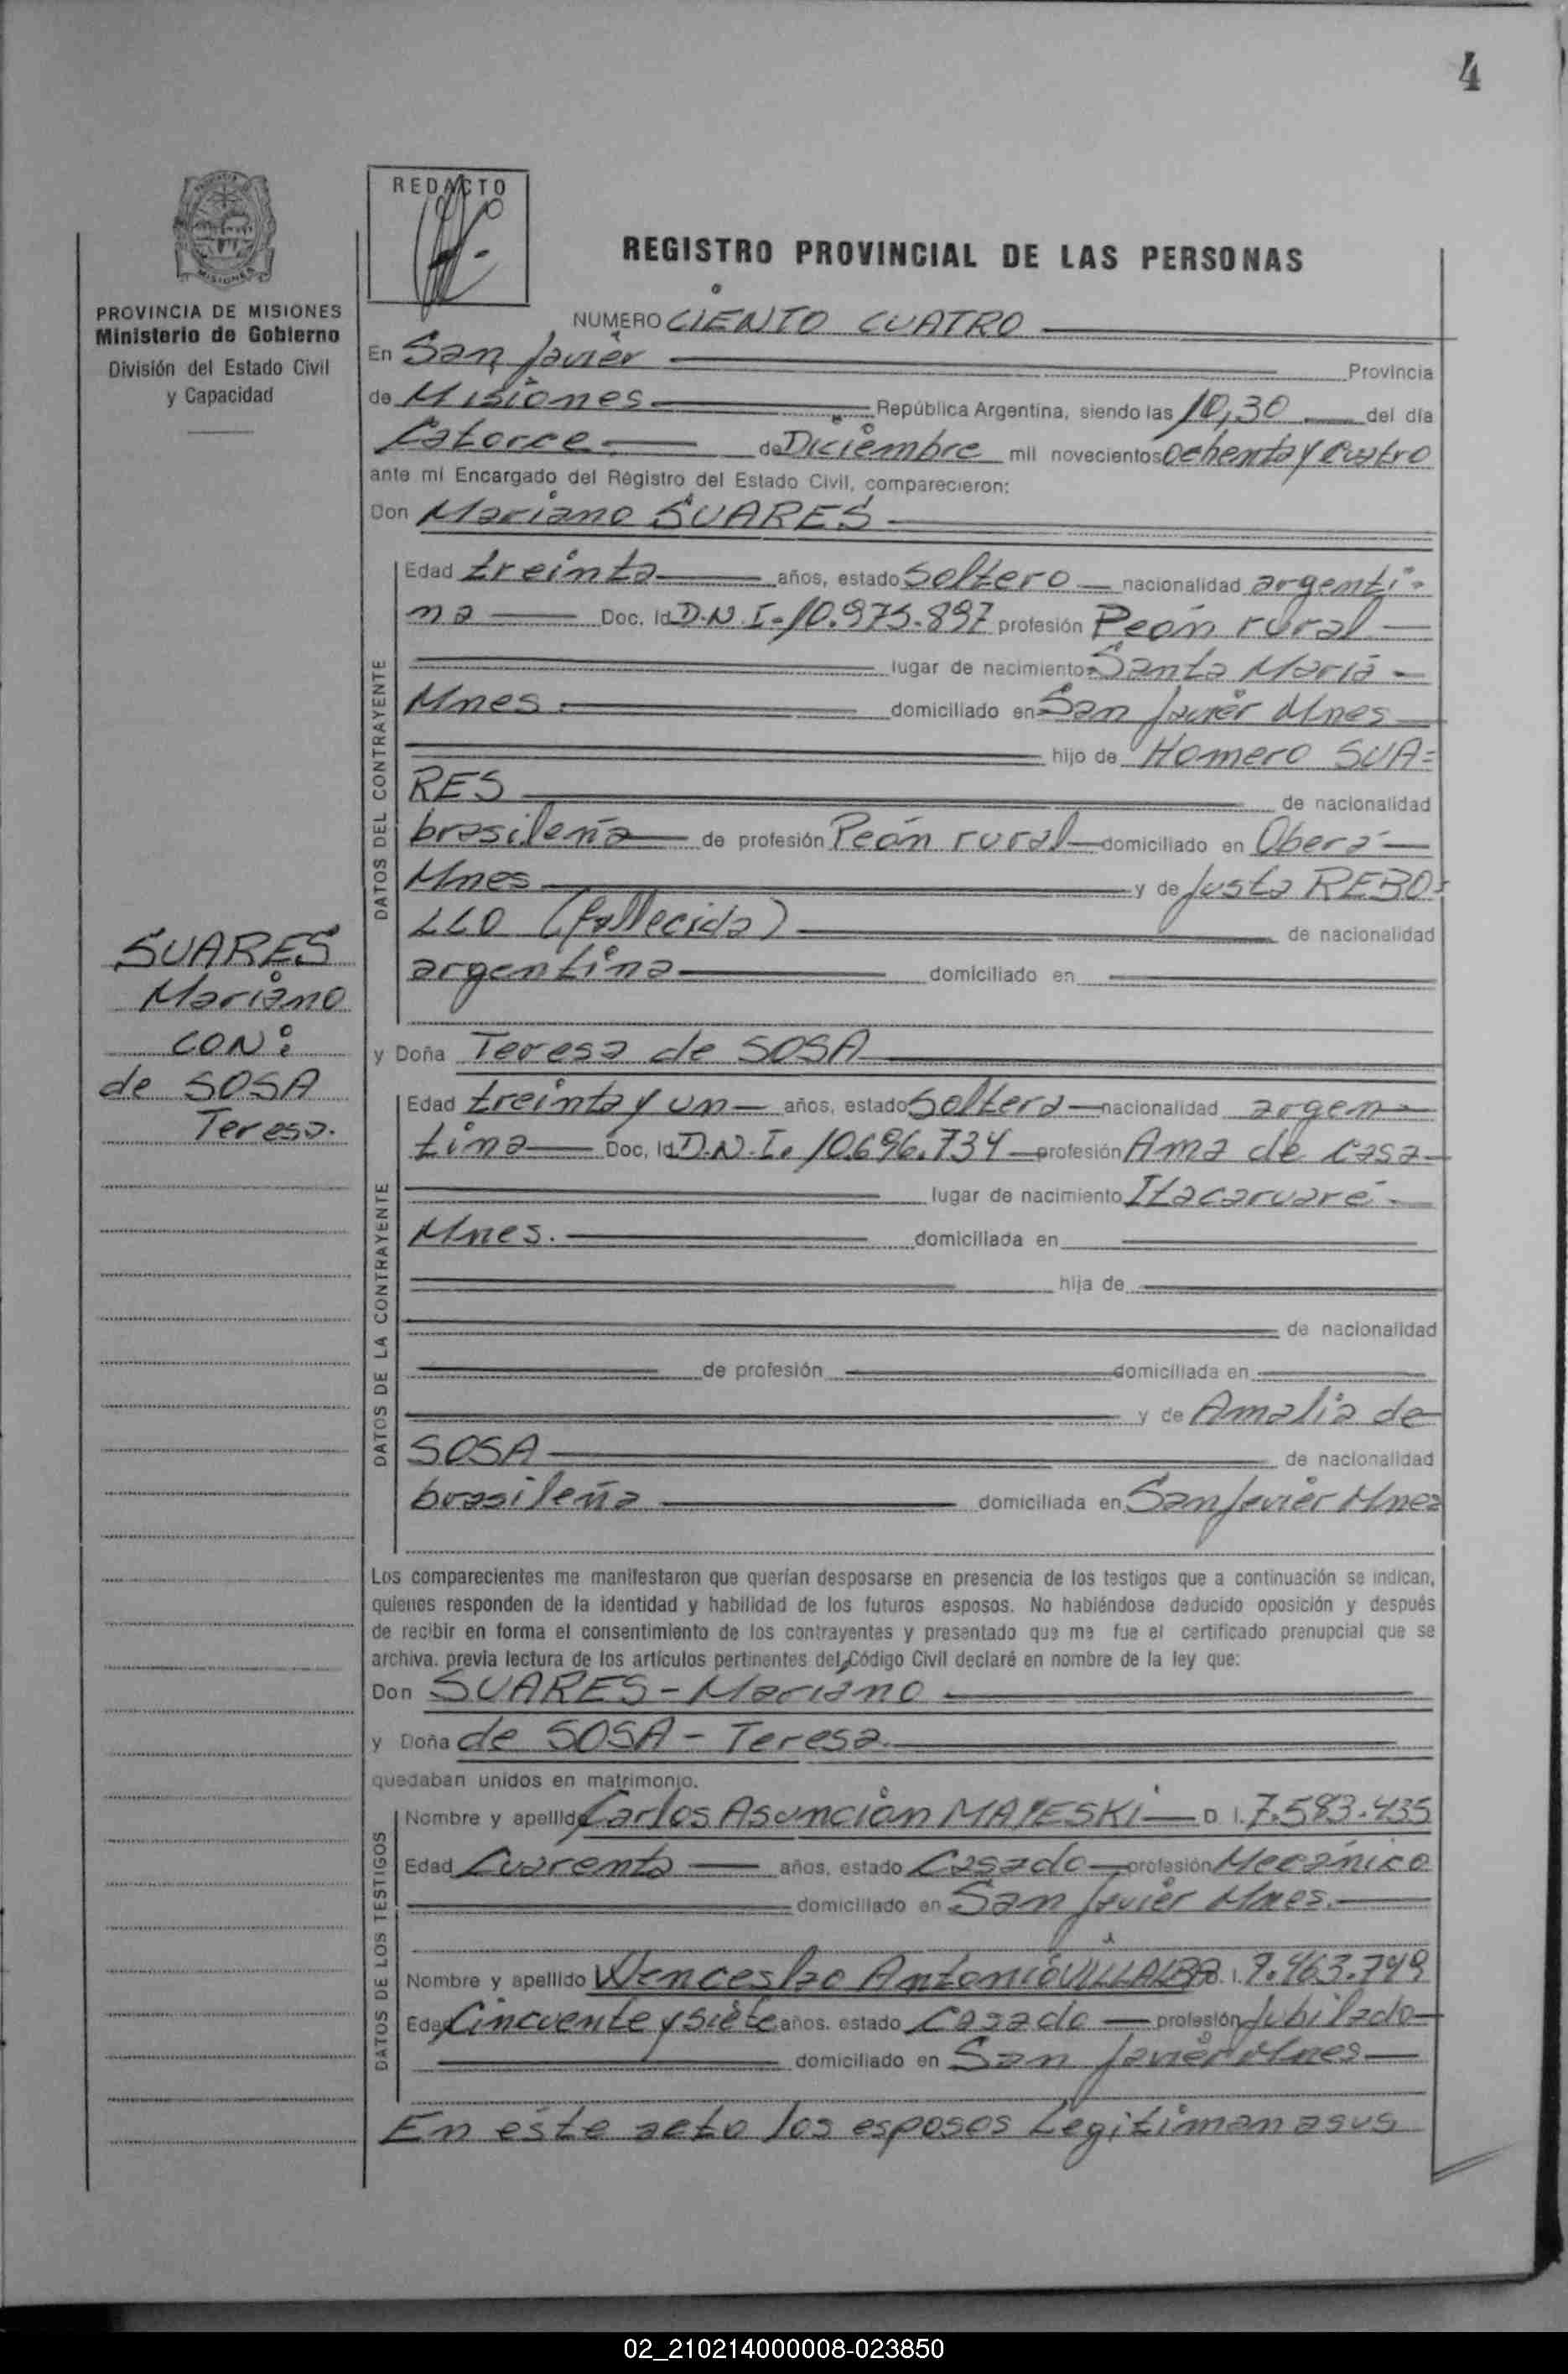 4
PROVINCIA DE MISIONES
Ministerio de Gobierno
División del Estado Civil
y Capacidad
REDACTO
REGISTRO PROVINCIAL DE LAS PERSONAS
NUMERO CIENTO CUATRO
En San Javier Provincia
de Misiones República Argentina, siendo las 10,30 del día
Catorce de Diciembre mil novecientos Ochenta y Cuatro
ante mí Encargado del Registro del Estado Civil, comparecieron:
Don Mariano SUARES
DATOS DEL CONTRAYENTE
Edad treinta años, estado Soltero nacionalidad argenti-
na Doc. Id D.N.I. 10.975.897 profesión Peón rural
lugar de nacimiento Santa María
Mnes domiciliado en San Javier Mnes
hijo de Homero SUA-
RES de nacionalidad
brasileña de profesión Peón rural domiciliado en Oberá
Mnes y de Justa REBO-
LLO (fallecida) de nacionalidad
argentina domiciliado en
SUARES
Mariano
CON:
de SOSA
Teresa.
y Doña Teresa de SOSA
DATOS DE LA CONTRAYENTE
Edad treinta y un años, estado Soltera nacionalidad argen-
tina Doc. Id D.N.I. 10.696.734 profesión Ama de casa
lugar de nacimiento Itacaruaré
Mnes. domiciliada en
hija de
de nacionalidad
de profesión domiciliada en
y de Amalia de
SOSA de nacionalidad
brasileña domiciliada en San Javier Mnes
Los comparecientes me manifestaron que querían desposarse en presencia de los testigos que a continuación se indican,
quienes responden de la identidad y habilidad de los futuros esposos. No habiéndose deducido oposición y después
de recibir en forma el consentimiento de los contrayentes y presentado que me fue el certificado prenupcial que se
archiva. previa lectura de los artículos pertinentes del Código Civil declaré en nombre de la ley que:
Don SUARES - Mariano
y Doña de SOSA - Teresa.
quedaban unidos en matrimonio.
DATOS DE LOS TESTIGOS
Nombre y apellido Carlos Asunción MAYESKI D. I. 7.583.435
Edad Cuarenta años, estado Casado profesión Mecánico
domiciliado en San Javier Mnes.
Nombre y apellido Wenceslao Antonio VILLALBA D. I. 7.463.749
Edad Cincuenta y siete años. estado Casado profesión Jubilado
domiciliado en San Javier Mnes
En este acto los esposos Legitiman a sus
02_210214000008-023850